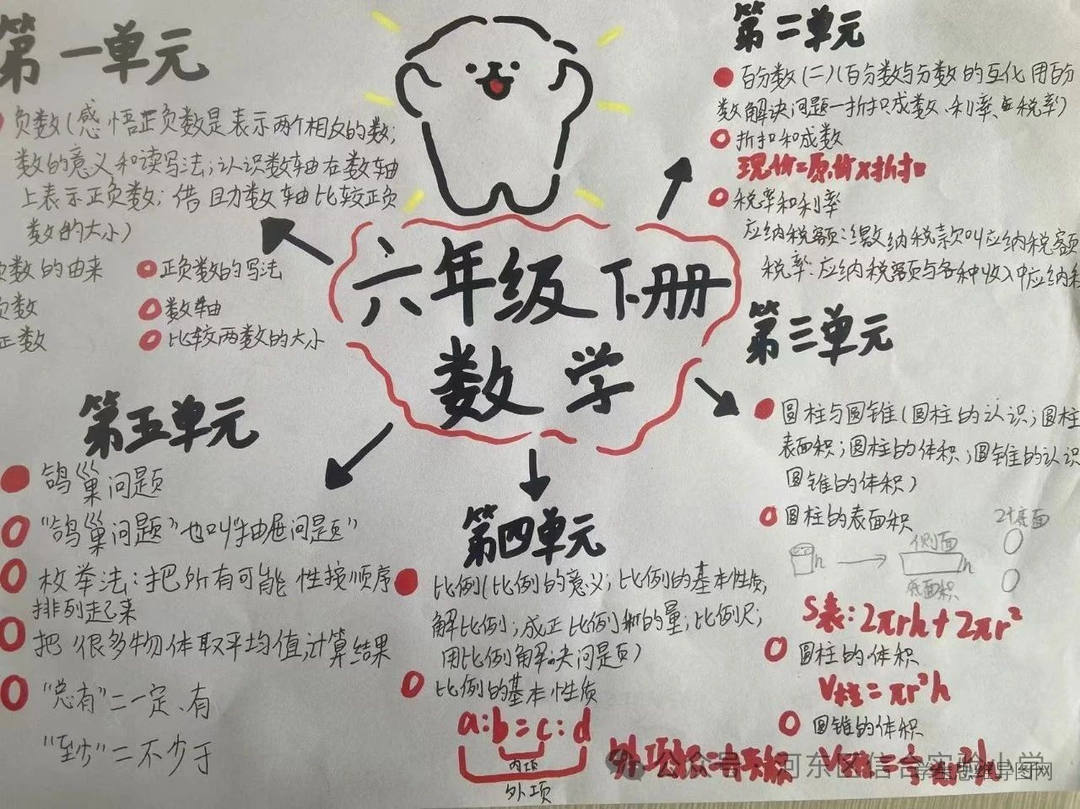 六年级下册
数学
第一单元
负数(感悟正负数是表示两个相反的数;
数的意义和读写法;认识数轴在数轴
上表示正负数;借助数轴比较正负
数的大小)
数的由来
正负数的写法
负数
数轴
正数
比较两数的大小
第二单元
百分数(二)(百分数与分数的互化 用百分
数解决问题—折扣、成数、利率、税率)
折扣和成数
现价=原价×折扣
税率和利率
应纳税额:缴纳税款叫应纳税额
税率:应纳税额与各种收入中应纳税
第三单元
圆柱与圆锥(圆柱的认识;圆柱
表面积;圆柱的体积;圆锥的认识
圆锥的体积)
圆柱的表面积
2个底面
侧面
h
h
底面积
S表:2πrh+2πr²
圆柱的体积
V柱=πr²h
圆锥的体积
第四单元
比例(比例的意义;比例的基本性质;
解比例;成正比例 的量;比例尺;
用比例解决问题)
比例的基本性质
a:b=c:d
内项
外项
第五单元
鸽巢问题
“鸽巢问题”也叫“抽屉问题”
枚举法:把所有可能性按顺序
排列起来
把很多物体取平均值,计算结果
“总有”=一定、有
“至少”=不少于
公众号 河东区信合实验小学
学生思维导图网